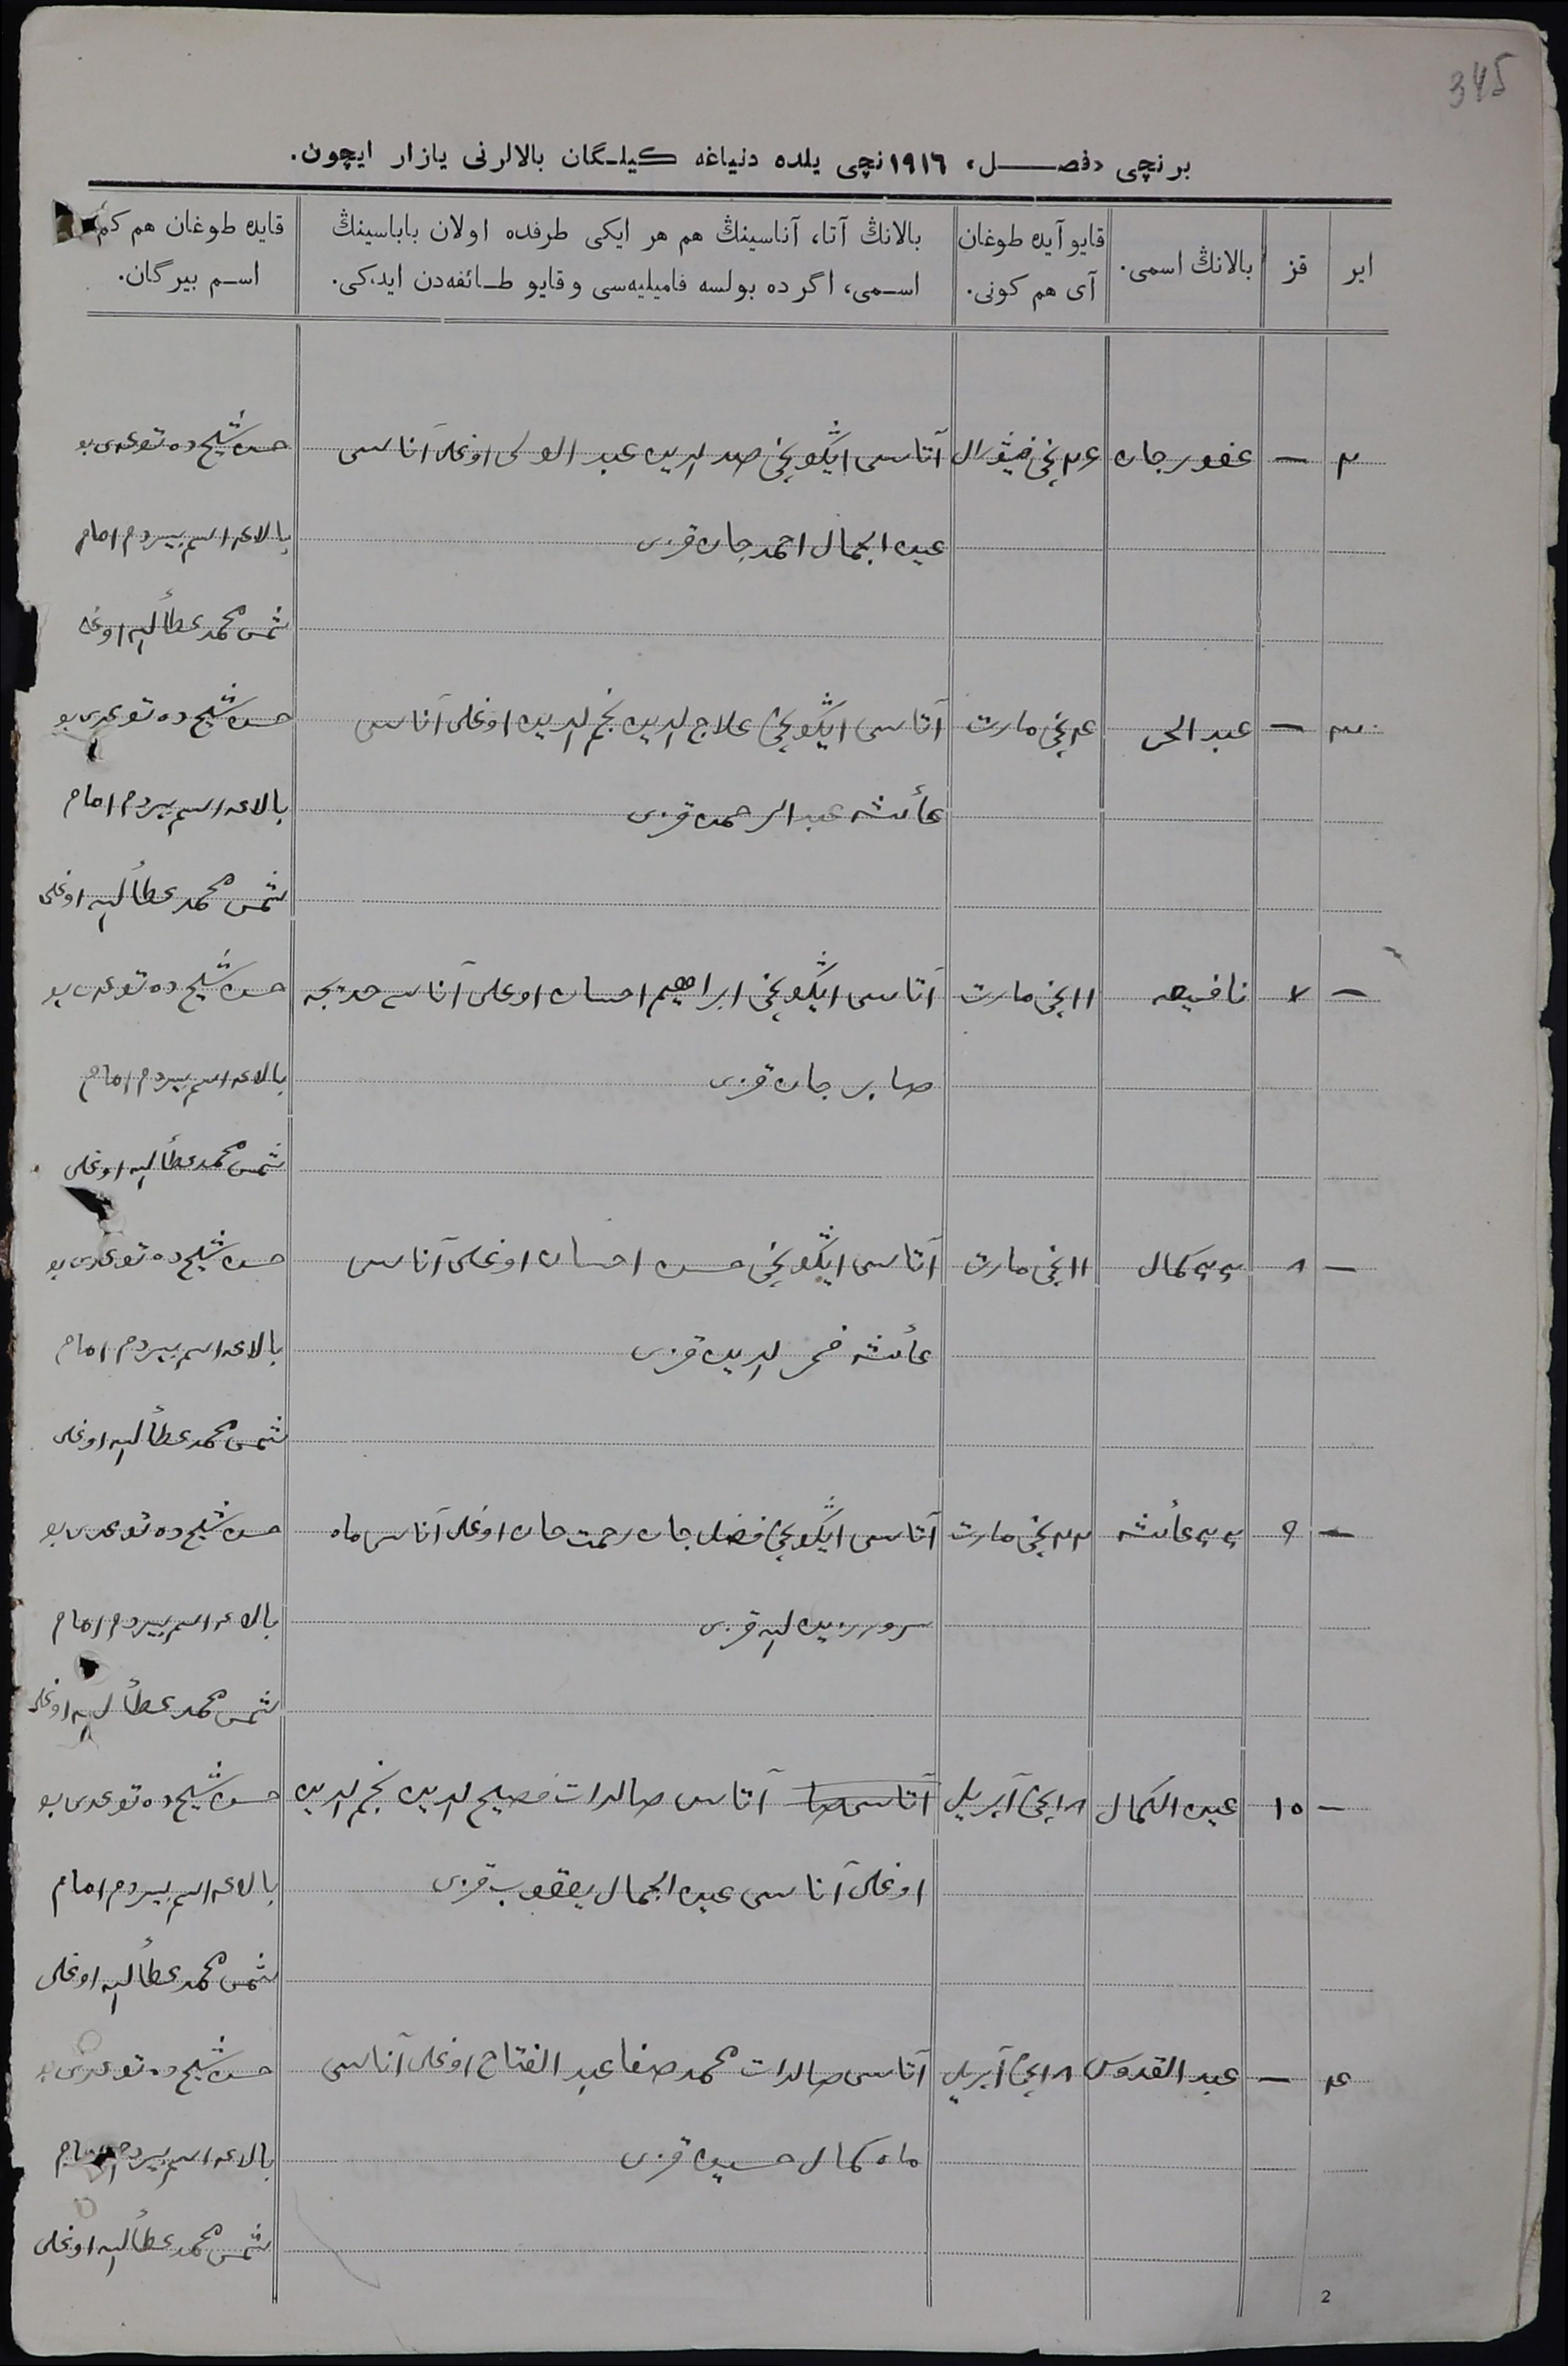 345
برنچی «فصل» ١٩١٦نچی یلده دنیاغه كیلـگان بالالرنی یازار ایچون.
ایر
قز
بالانڭ اسمی.
قایو آیده طوغان آی هم كونی.
بالانڭ آتا، آناسینڭ هم هر ایكی طرفده اولان باباسینڭ
اسـمی، اگر ده بولسه فامیلیه‌سی و قایو طـائفه‌دن ایدكی.
قایده طوغان هم كم
اسـم بیرگان.
٢ — غفورجان ٢٤نچی فیۋرال آتاسی ایگونچی صدرالدین عبد الولی اوغلی آناسی
عین الجمال احمدجان قزی
بالاغه اسم بیردم امام
شمس محمد عطأالله اوغلی
٣ — عبد الحی ٤نچی مارت آتاسی ایگونچی علاج الدین نجم الدین اوغلی آناسی
عأئشه عبد الرحمن قزی
بالاغه اسم بیردم امام
شمس محمد عطأالله اوغلی
— ٧ نافیعه ١١نچی مارت آتاسی ایگونچی ابراهیم احسان اوغلی آناسی خدیجه
صابر جان قزی
بالاغه اسم بیردم امام
شمس محمد عطأالله اوغلی
— ٨ بی بی كمال ١١نچی مارت آتاسی ایگونچی حسن احسان اوغلی آناسی
عأئشه فخر الدین قزی
بالاغه اسم بیردم امام
شمس محمد عطأالله اوغلی
— ٩ بی بی عأئشه ٢٢نچی مارت آتاسی ایگونچی فضل جان رحمت جان اوغلی آناسی ماه
سرور زین الله قزی
بالاغه اسم بیردم امام
شمس محمد عطأالله اوغلی
— ١٠ عین الكمال ١٨نچی آپریل آتاسی صا آتاسی صالدات فصیح الدین نجم الدین
اوغلی آناسی عین الجمال یعقوب قزی
بالاغه اسم بیردم امام
شمس محمد عطأالله اوغلی
٤ — عبد القدوس ١٨نچی آپریل آتاسی صالدات محمد صفا عبد الفتاح اوغلی آناسی
ماه كمال حسین قزی
بالاغه اسم بیردم امام
شمس محمد عطأالله اوغلی
2